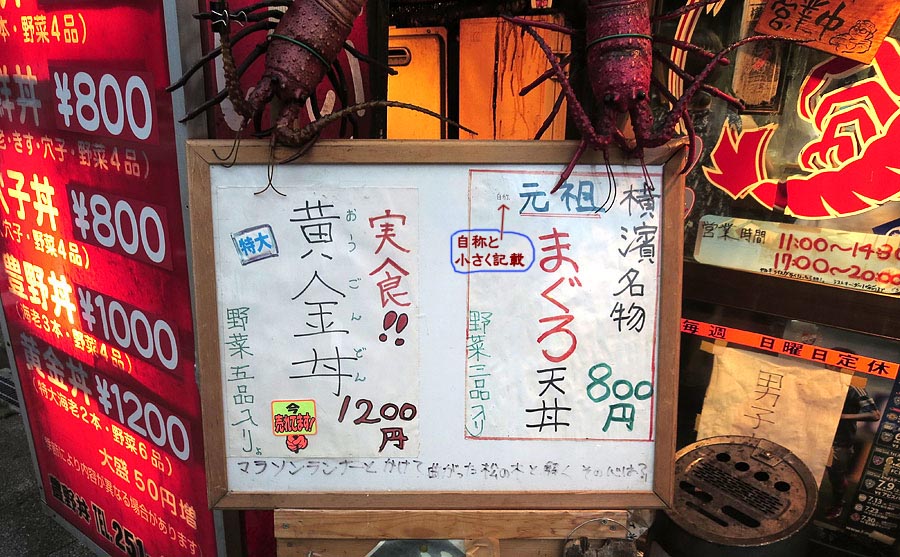 本・野菜4品)
丼 ¥800
・きす・穴子・野菜4品)
穴子丼 ¥800
穴子・野菜4品)
豊野丼 ¥1000
(海老3本・野菜4品)
黄金丼 ¥1200
(特大海老2本・野菜6品)
大盛50円増
季節により内容が異なる場合があります
豊野丼 TEL.251
横濱名物
元祖
自称
まぐろ
天丼
800円
野菜三品入り
自称と
小さく記載
実食!!
特大
黄金丼
おうごんどん
野菜五品入りょ
1200円
今
売れてます!
マラソンランナーとかけて 曲がった松の木と解く その心は?
営業時間
11:00〜14:30
17:00〜20:00
毎週 日曜日定休
男子